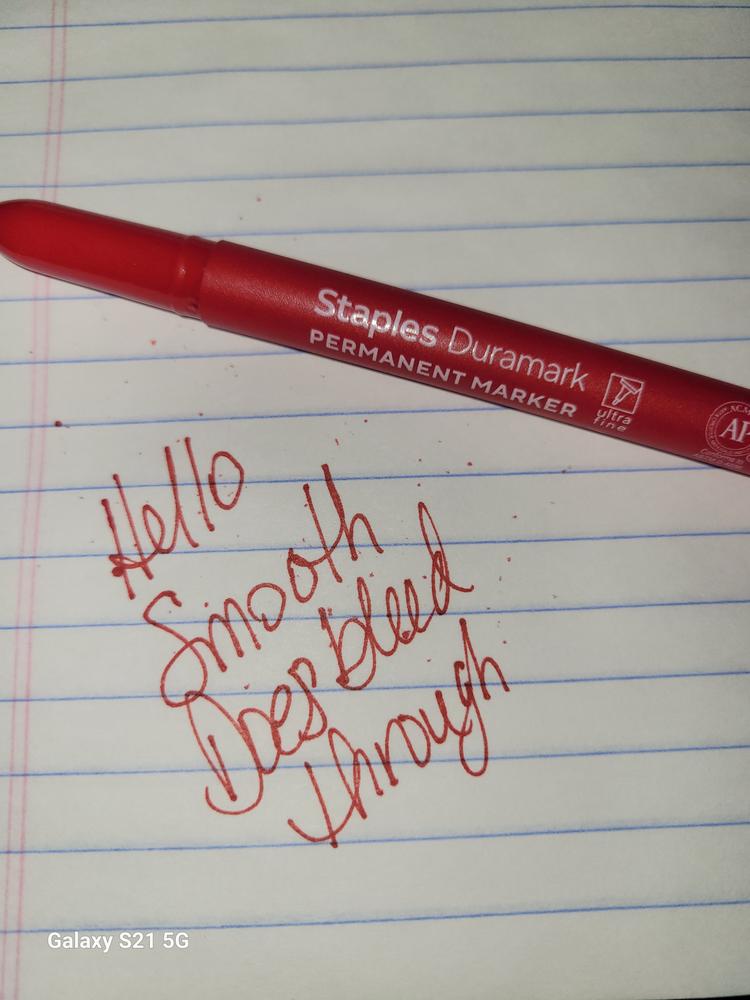 Staples Duramark
PERMANENT MARKER
ultra
fine
AP
Hello
Smooth
Does bleed
through
Galaxy S21 5G